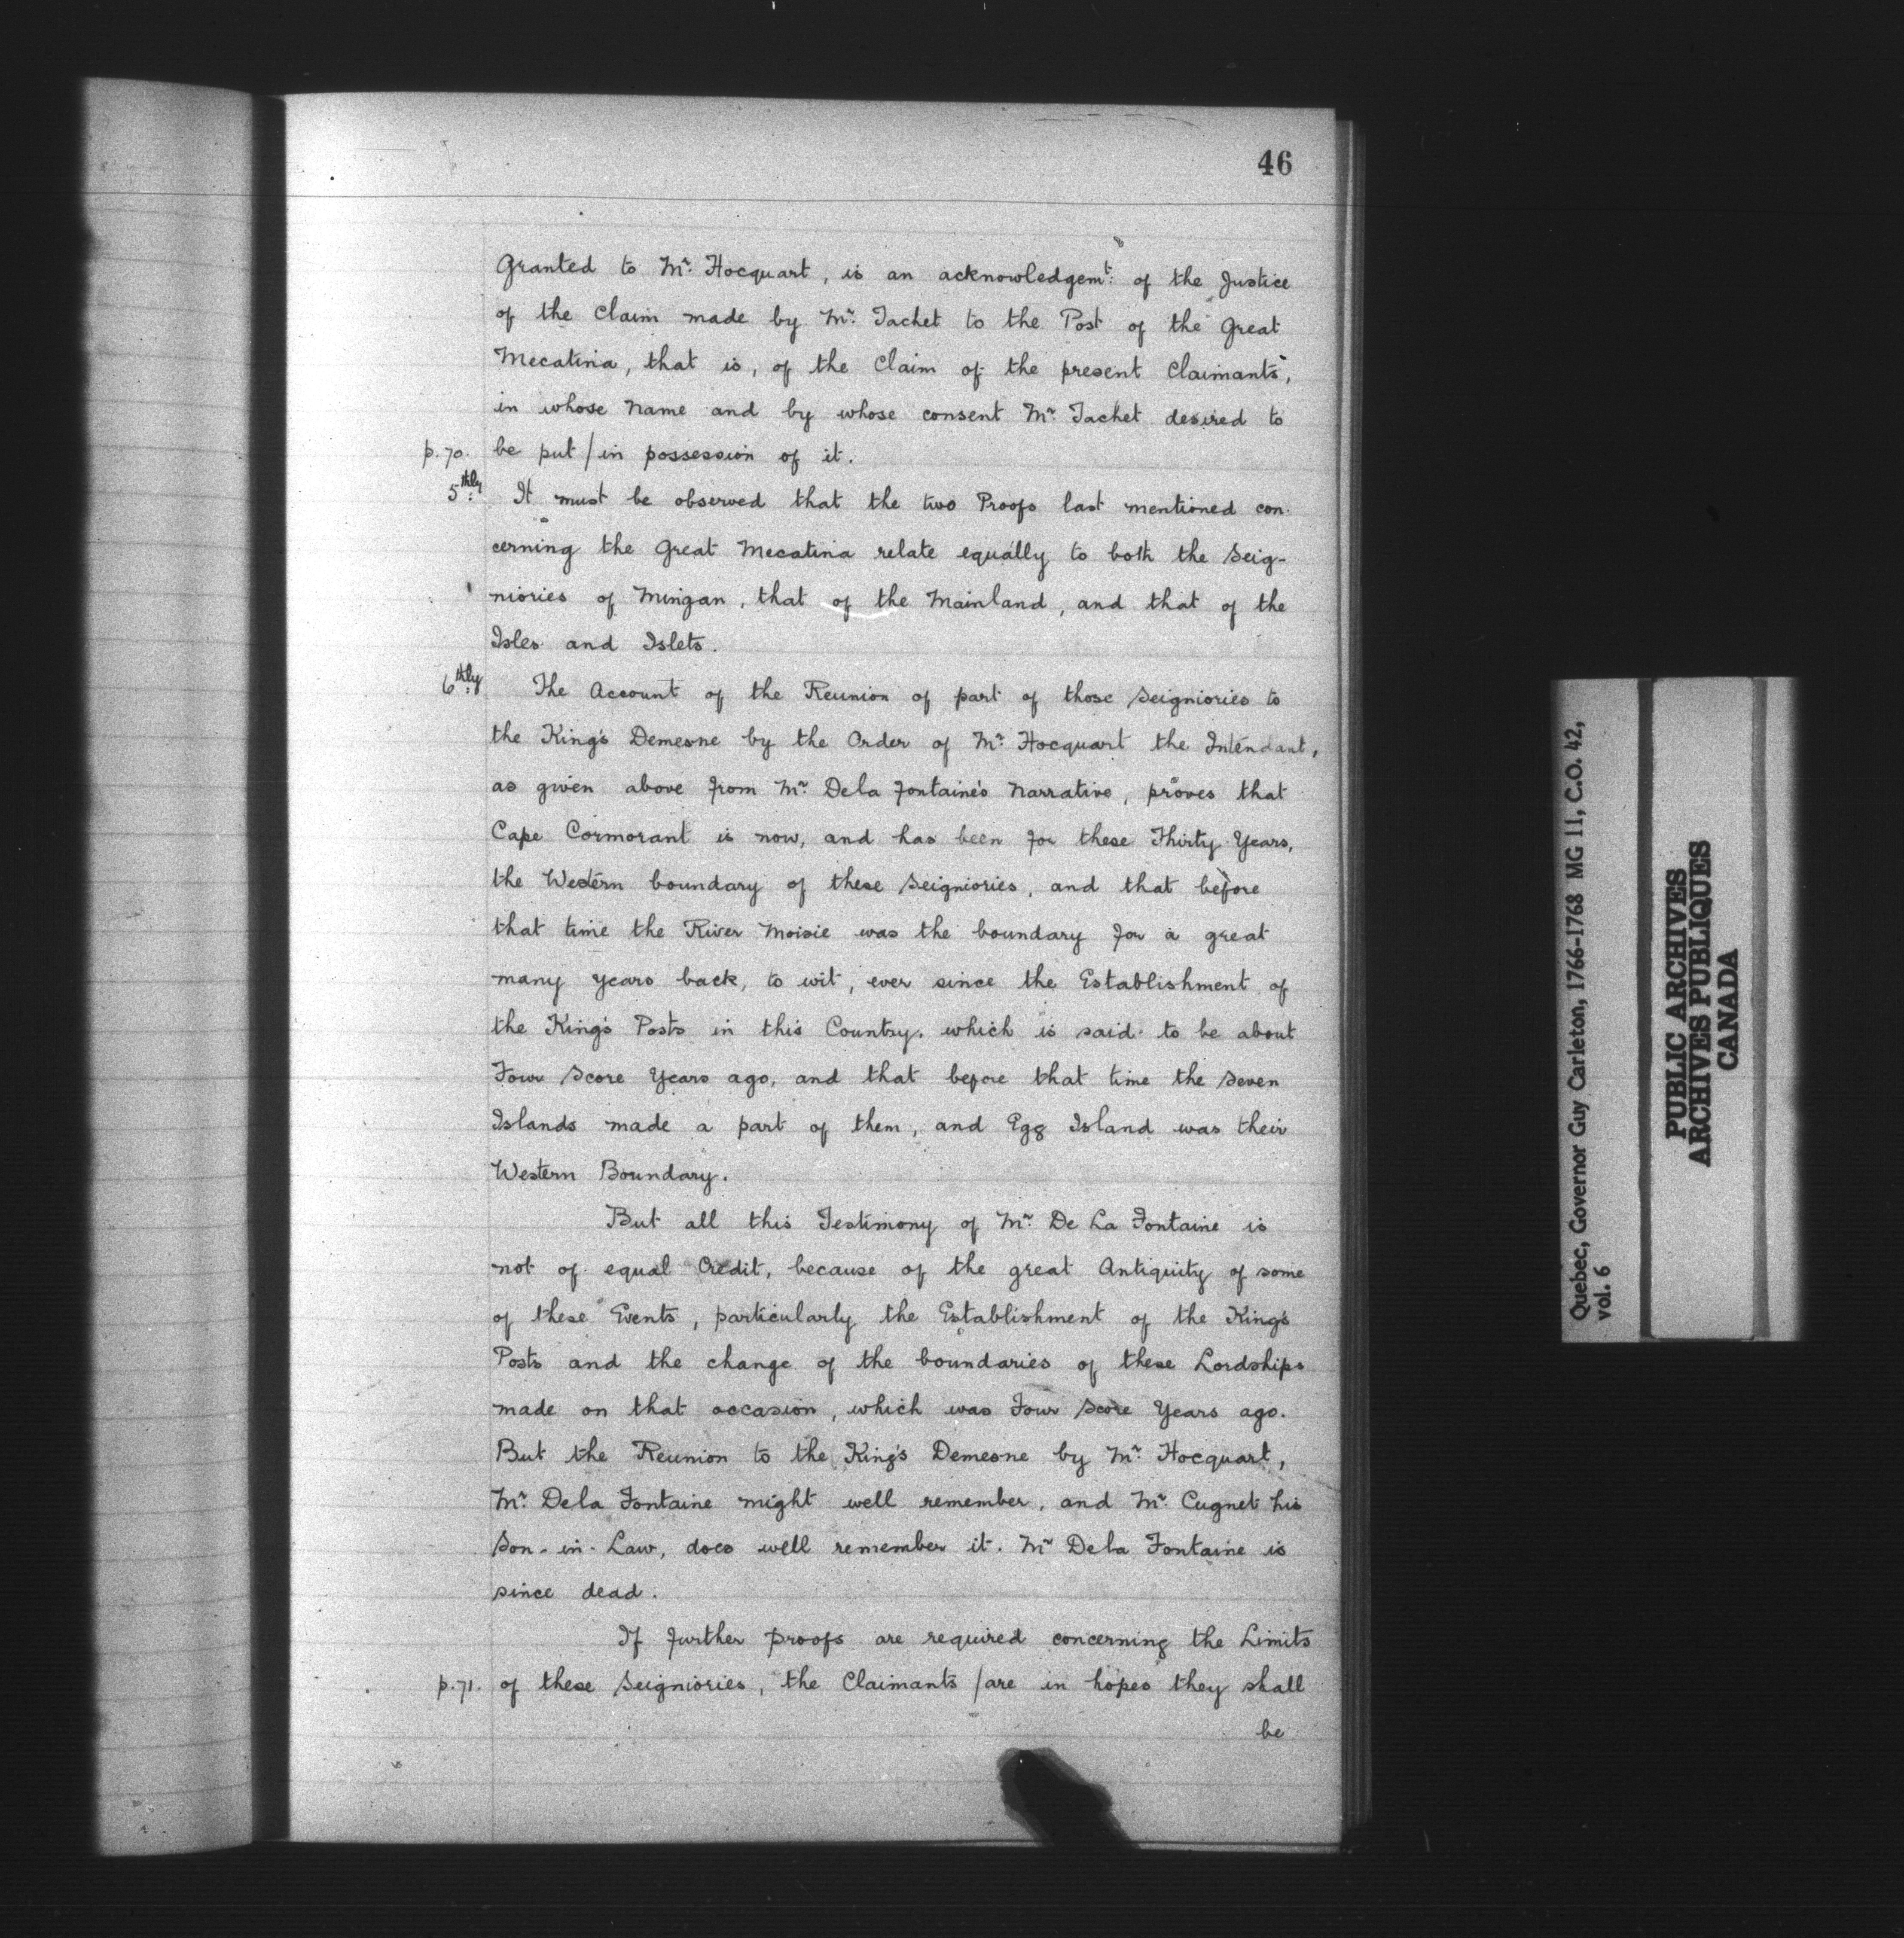 46
Granted to Mr. Hocquart, is an acknowledgemt. of the Justice
of the Claim made by Mr. Tachet to the Post of the Great
Mecatina, that is, of the Claim of the present Claimants,
in whose Name and by whose consent Mr. Tachet desired to
p. 70. be put / in possession of it.
5thly: It must be observed that the two Proofs last mentioned con-
cerning the Great Mecatina relate equally to both the Seig-
niories of Mingan, that of the Mainland, and that of the
Isles and Islets.
6thly: The Account of the Reunion of part of those Seigniories to
the King's Demesne by the Order of Mr. Hocquart the Intendant,
as given above from Mr. De la Fontaine's Narrative, proves that
Cape Cormorant is now, and has been for these Thirty Years,
the Western boundary of these Seigniories, and that before
that time the River Moisie was the boundary for a great
many years back, to wit, ever since the Establishment of
the King's Posts in this Country, which is said to be about
Four Score Years ago, and that before that time the Seven
Islands made a part of them, and Egg Island was their
Western Boundary.
But all this Testimony of Mr. De La Fontaine is
not of equal Credit, because of the great Antiquity of some
of these Events, particularly the Establishment of the King's
Posts and the change of the boundaries of these Lordships
made on that occasion, which was Four Score Years ago.
But the Reunion to the King's Demesne by Mr. Hocquart,
Mr. De la Fontaine might well remember, and Mr. Cugnet his
Son-in-Law, does well remember it. Mr. De la Fontaine is
since dead.
If further proofs are required concerning the Limits
p. 71. of these Seigniories, the Claimants / are in hopes they shall
be
Quebec, Governor Guy Carleton, 1766-1768 MG 11, C.O. 42,
vol. 6
PUBLIC ARCHIVES
ARCHIVES PUBLIQUES
CANADA